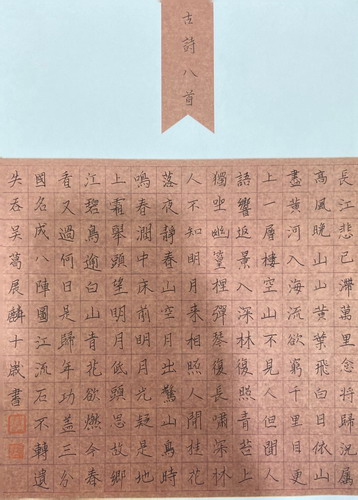 古詩八首
長江悲已滯萬里念將歸況屬
高風晚山山黃葉飛白日依山
盡黃河入海流欲窮千里目更
上一層樓空山不見人但聞人
語響返景入深林復照青苔上
獨坐幽篁裡彈琴復長嘯深林
人不知明月來相照人閒桂花
落夜靜春山空月出驚山鳥時
鳴春澗中床前明月光疑是地
上霜舉頭望明月低頭思故鄉
江碧鳥逾白山青花欲燃今春
看又過何日是歸年功蓋三分
國名成八陣圖江流石不轉遺
失吞吳葛展麟十歲書